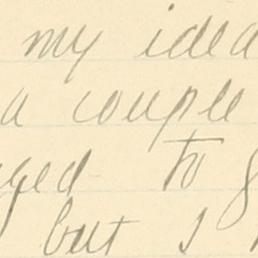 my idea
a couple
aged to g
but I